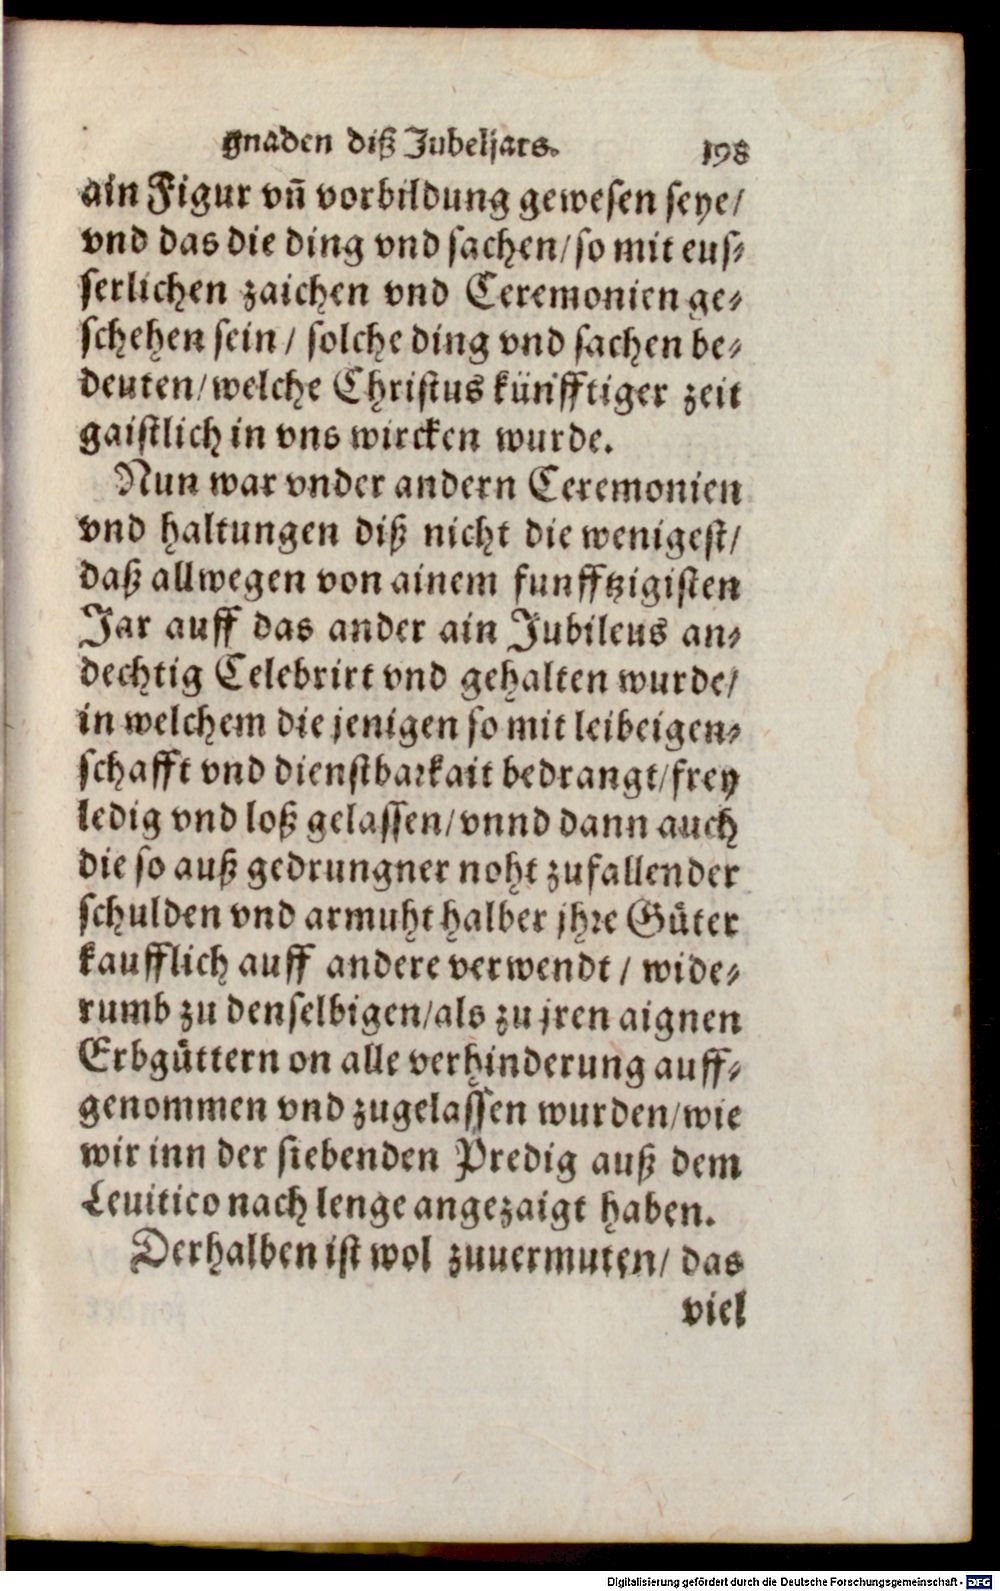 gnaden diß Jubeljars. 198
ain Figur vñ vorbildung gewesen seye/
vnd das die ding vnd sachen/so mit eus⸗
serlichen zaichen vnd Ceremonien ge⸗
schehen sein / solche ding vnd sachen be⸗
deuten/welche Christus künfftiger zeit
gaistlich in vns wircken wurde.
Nun war vnder andern Ceremonien
vnd haltungen diß nicht die wenigest/
daß allwegen von ainem funfftzigisten
Jar auff das ander ain Jubileus an⸗
dechtig Celebrirt vnd gehalten wurde/
in welchem die jenigen so mit leibeigen⸗
schafft vnd dienstbarkait bedrangt/frey
ledig vnd loß gelassen/vnnd dann auch
die so auß gedrungner noht zufallender
schulden vnd armuht halber jhre Gůter
kaufflich auff andere verwendt / wide⸗
rumb zu denselbigen/als zu jren aignen
Erbgůttern on alle verhinderung auff⸗
genommen vnd zugelassen wurden/wie
wir inn der siebenden Predig auß dem
Leuitico nach lenge angezaigt haben.
Derhalben ist wol zuuermuten/ das
viel
Digitalisierung gefördert durch die Deutsche Forschungsgemeinschaft - DFG